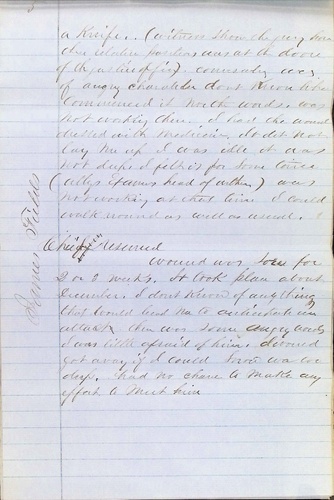 a Knife. (witness shows the jury from
their relative positions was at the door
of the office). conversation was
of angry character dont know who
commenced it North words. was
not working there. I had the wound
dressed with medicine, it did not
lay me up I was idle it was
not deep. I felt it for some time
( head of ) was
not working at that time I could
walk round as well as usual. I
Chief resumed
wound was sore for
2 or 3 weeks. It took place about
December. I dont know of anything
that would lead me to anticipate an
attack. there was some angry words
I was little afraid of him.
got away if I could Snow was too
deep. had no chance to make any
effort to meet him
James Fields